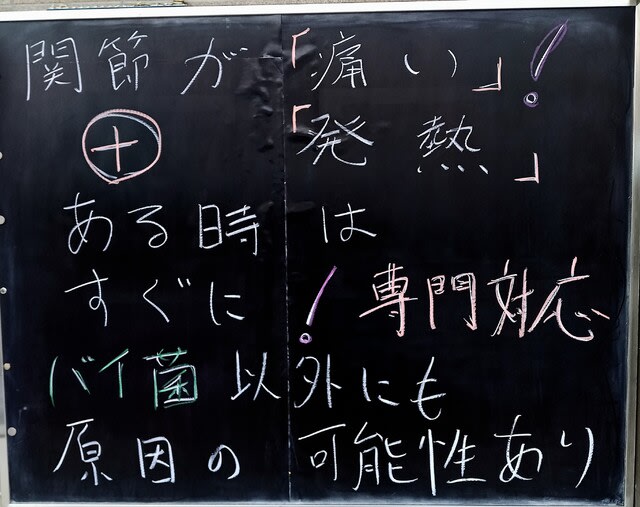 関節が「痛い」!
⊕「発熱」
ある時は
すぐに!専門対応
バイ菌以外にも
原因の可能性あり